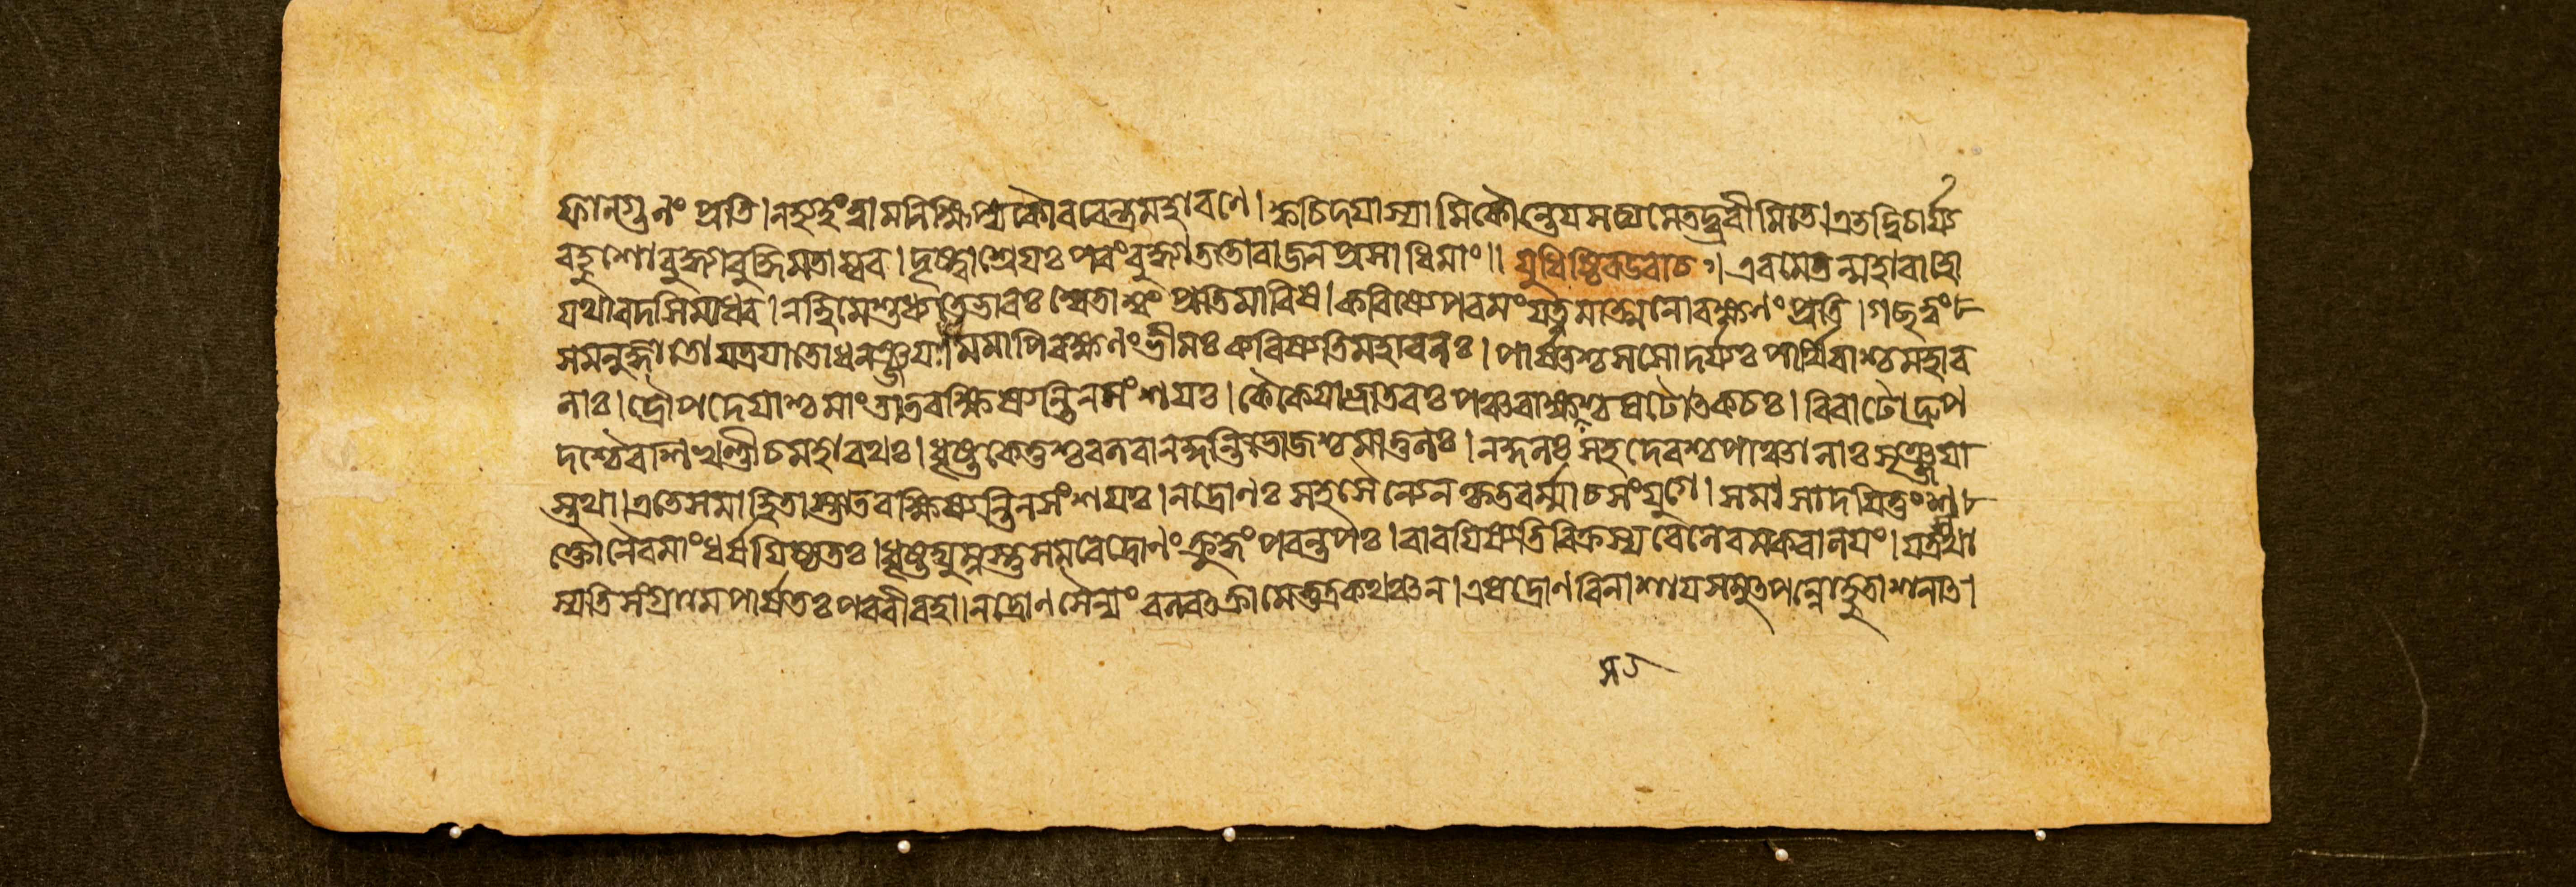 ফাল্গুনং প্রতি।নহ্যহংত্বামনিক্ষিপ্যকৌরবেন্দ্রমহারণে।ক্বচিদযাস্যামিকৌন্তেযসত্যমেতদ্ব্রবীমিতে।এতদ্বিচার্য্য
বহুশোবুদ্ধ্যাবুদ্ধিমতাম্বর।দৃষ্ট্বাশ্রেযঃপরংবুদ্ধ্যাততোরাজনপ্রসাধিমাং॥যুধিষ্ঠিরউবাচ।এবমেতন্মহাবাহো
যথাবদসিমাধব।নতুমেশুধ্যতেভাবঃশ্বেতাশ্বং প্রতিমারিষ।করিষ্যেপরমংযত্নমাত্মনোরক্ষণং প্রতি।গছত্বং
সমনুজ্ঞাতোযত্রযাতোধনঞ্জযঃ।মমাপিরক্ষণংভীমঃকরিষ্যতিমহাবলঃ।পার্ষতশ্চসসোদর্য্যঃপার্থিবাশ্চমহাব
লাঃ।দ্রৌপদেযাশ্চমাংতাতরক্ষিষ্যন্তিনসংশযঃ।কৈকেযাভ্রাতরঃপঞ্চরাক্ষসশ্চঘটোতকচঃ।বিরাটোদ্রুপ
দশ্চৈবশিখণ্ডীচমহারথঃ।ধৃষ্টকেতুশ্চবলবানকুন্তিভোজশ্চমাতুলঃ।নকুলঃসহদেবশ্চপাঞ্চালাঃসৃঞ্জযা
স্তথা।এতেসমাহিতাস্তাতরক্ষিষ্যন্তিনসংশযঃ।নদ্রোণঃসহসৈন্যেনকৃতবর্ম্মাচসংযুগে।সমাসাদযিতুংশ
ক্তোনৈবমাংধর্ষযিষ্যতঃ।ধৃষ্টদ্যুম্নস্তুসমরেদ্রোণংক্রুদ্ধংপরন্তপঃ।বারযিষ্যতিবিক্রম্যবেলেবমকরালযং।যত্রস্থা
স্যতিসংগ্রামেপার্ষতঃপরবীরহা।নদ্রোণসৈন্যংবলবতক্রামেত্তত্রকথঞ্চন।এষদ্রোণবিনাশাযসমুতপন্নোহুতাশনাত।